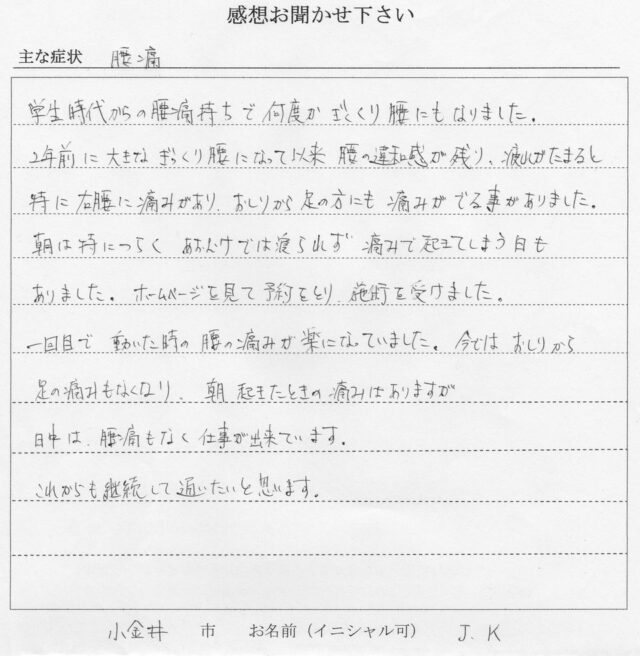 感想お聞かせ下さい
主な症状 腰痛
学生時代からの腰痛持ちで何度かぎっくり腰にもなりました。
2年前に大きなぎっくり腰になって以来 腰の違和感が残り、疲れがたまると
特に右腰に痛みがあり、おしりから足の方にも痛みがでる事がありました。
朝は特につらく あおむけでは寝られず 痛みで起きてしまう日も
ありました。ホームページを見て予約をとり、施術を受けました。
一回目で 動いた時の腰の痛みが楽になっていました。今では おしりから
足の痛みもなくなり、朝 起きたときの痛みはありますが
日中は、腰痛もなく仕事が出来ています。
これからも継続して通いたいと思います。
小金井 市 お名前(イニシャル可) J.K